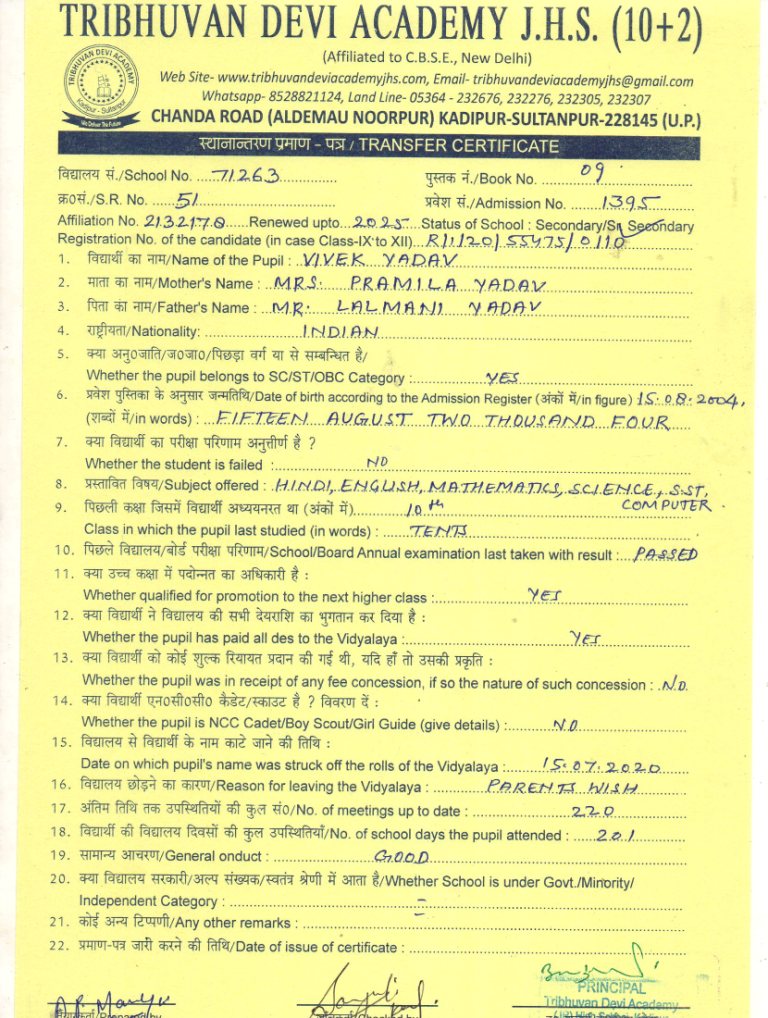 TRIBHUVAN DEVI ACADEMY J.H.S. (10+2)
(Affiliated to C.B.S.E., New Delhi)
TRIBHUVAN DEVI ACADEMY
Kadipur - Sultanpur
We Deliver The Future
Web Site- www.tribhuvandeviacademyjhs.com, Email- tribhuvandeviacademyjhs@gmail.com
Whatsapp- 8528821124, Land Line- 05364 - 232676, 232276, 232305, 232307
CHANDA ROAD (ALDEMAU NOORPUR) KADIPUR-SULTANPUR-228145 (U.P.)
स्थानान्तरण प्रमाण - पत्र / TRANSFER CERTIFICATE
विद्यालय सं./School No. 71263 पुस्तक नं./Book No. 09
क्र०सं./S.R. No. 51 प्रवेश सं./Admission No. 1395
Affiliation No. 2132178 Renewed upto 2025 Status of School : Secondary/Sr. Secondary
Registration No. of the candidate (in case Class-IX to XII) R/1/120/55475/0110
1. विद्यार्थी का नाम/Name of the Pupil : VIVEK YADAV
2. माता का नाम/Mother's Name : MRS. PRAMILA YADAV
3. पिता का नाम/Father's Name : MR. LALMANI YADAV
4. राष्ट्रीयता/Nationality: INDIAN
5. क्या अनु०जाति/ज०जा०/पिछड़ा वर्ग या से सम्बन्धित है/
Whether the pupil belongs to SC/ST/OBC Category : YES
6. प्रवेश पुस्तिका के अनुसार जन्मतिथि/Date of birth according to the Admission Register (अंकों में/in figure) 15.08.2004,
(शब्दों में/in words) : FIFTEEN AUGUST TWO THOUSAND FOUR
7. क्या विद्यार्थी का परीक्षा परिणाम अनुत्तीर्ण है ?
Whether the student is failed : NO
8. प्रस्तावित विषय/Subject offered : HINDI, ENGLISH, MATHEMATICS, SCIENCE, S.ST,
COMPUTER
9. पिछली कक्षा जिसमें विद्यार्थी अध्ययनरत था (अंकों में) 10th
Class in which the pupil last studied (in words) : TENTS
10. पिछले विद्यालय/बोर्ड परीक्षा परिणाम/School/Board Annual examination last taken with result : PASSED
11. क्या उच्च कक्षा में पदोन्नत का अधिकारी है :
Whether qualified for promotion to the next higher class : YES
12. क्या विद्यार्थी ने विद्यालय की सभी देयराशि का भुगतान कर दिया है :
Whether the pupil has paid all des to the Vidyalaya : YES
13. क्या विद्यार्थी को कोई शुल्क रियायत प्रदान की गई थी, यदि हाँ तो उसकी प्रकृति :
Whether the pupil was in receipt of any fee concession, if so the nature of such concession : NO
14. क्या विद्यार्थी एन०सी०सी० कैडेट/स्काउट है ? विवरण दें :
Whether the pupil is NCC Cadet/Boy Scout/Girl Guide (give details) : NO
15. विद्यालय से विद्यार्थी के नाम काटे जाने की तिथि :
Date on which pupil's name was struck off the rolls of the Vidyalaya : 15.07.2020
16. विद्यालय छोड़ने का कारण/Reason for leaving the Vidyalaya : PARENTS WISH
17. अंतिम तिथि तक उपस्थितियों की कुल सं०/No. of meetings up to date : 220
18. विद्यार्थी की विद्यालय दिवसों की कुल उपस्थितियाँ/No. of school days the pupil attended : 201
19. सामान्य आचरण/General onduct : GOOD
20. क्या विद्यालय सरकारी/अल्प संख्यक/स्वतंत्र श्रेणी में आता है/Whether School is under Govt./Minority/
Independent Category : -
21. कोई अन्य टिप्पणी/Any other remarks : -
22. प्रमाण-पत्र जारी करने की तिथि/Date of issue of certificate :
PRINCIPAL
Tribhuvan Devi Academy